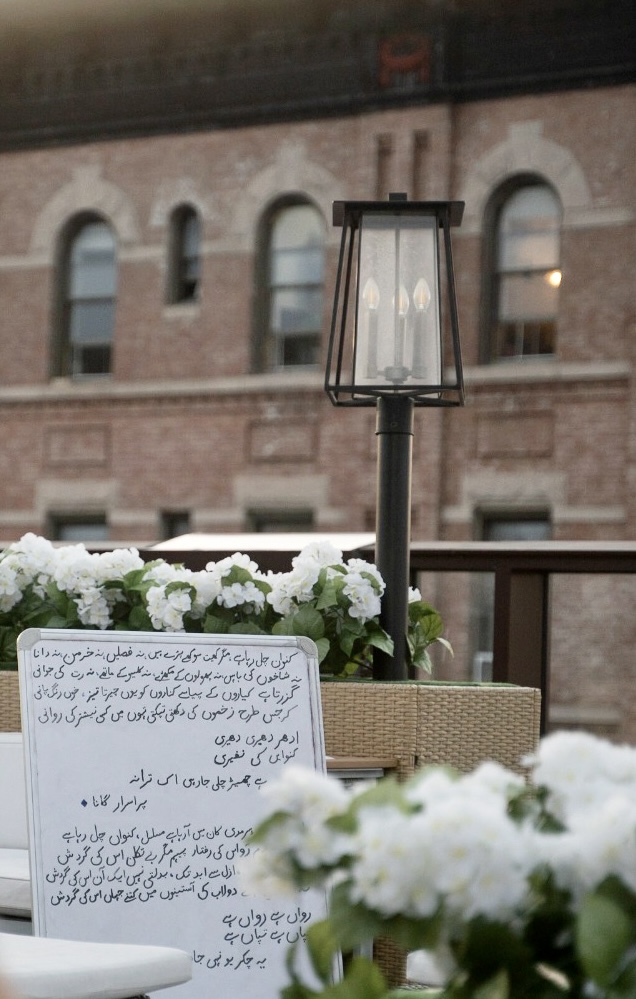 کنواں چل رہا ہے، مگر کھیت سوکھے پڑے ہیں، نہ فصلیں، نہ خرمن، نہ دانہ
نہ شاخوں کی باہیں، نہ پھولوں کے مکھڑے، نہ کلیوں کے ماتھے، نہ رت کی جوانی
گزرتا ہے کیاروں کے پیاسے کناروں کو یوں چیرتا تیز، خوں رنگ پانی
کہ جس طرح زخموں کی دکھتی تپکتی تہوں میں کسی نیشتر کی روانی
ادھر دھیری دھیری
کنویں کی نفیری
ہے چھیڑے چلی جا رہی اک ترانہ
پراسرار گانا
سرمدی گان میں آ رہا ہے مسلسل، کنواں چل رہا ہے
رواں اس کی رفتار، پیہم مگر بے تکان اس کی گردش
ازل سے ابد تک، بدلتی نہیں ایک آن اس کی گردش
دولاب کی آستینوں میں کتنے جہاں اس کی گردش
رواں ہے رواں ہے
تپاں ہے تپاں ہے
یہ چکر یونہی جا